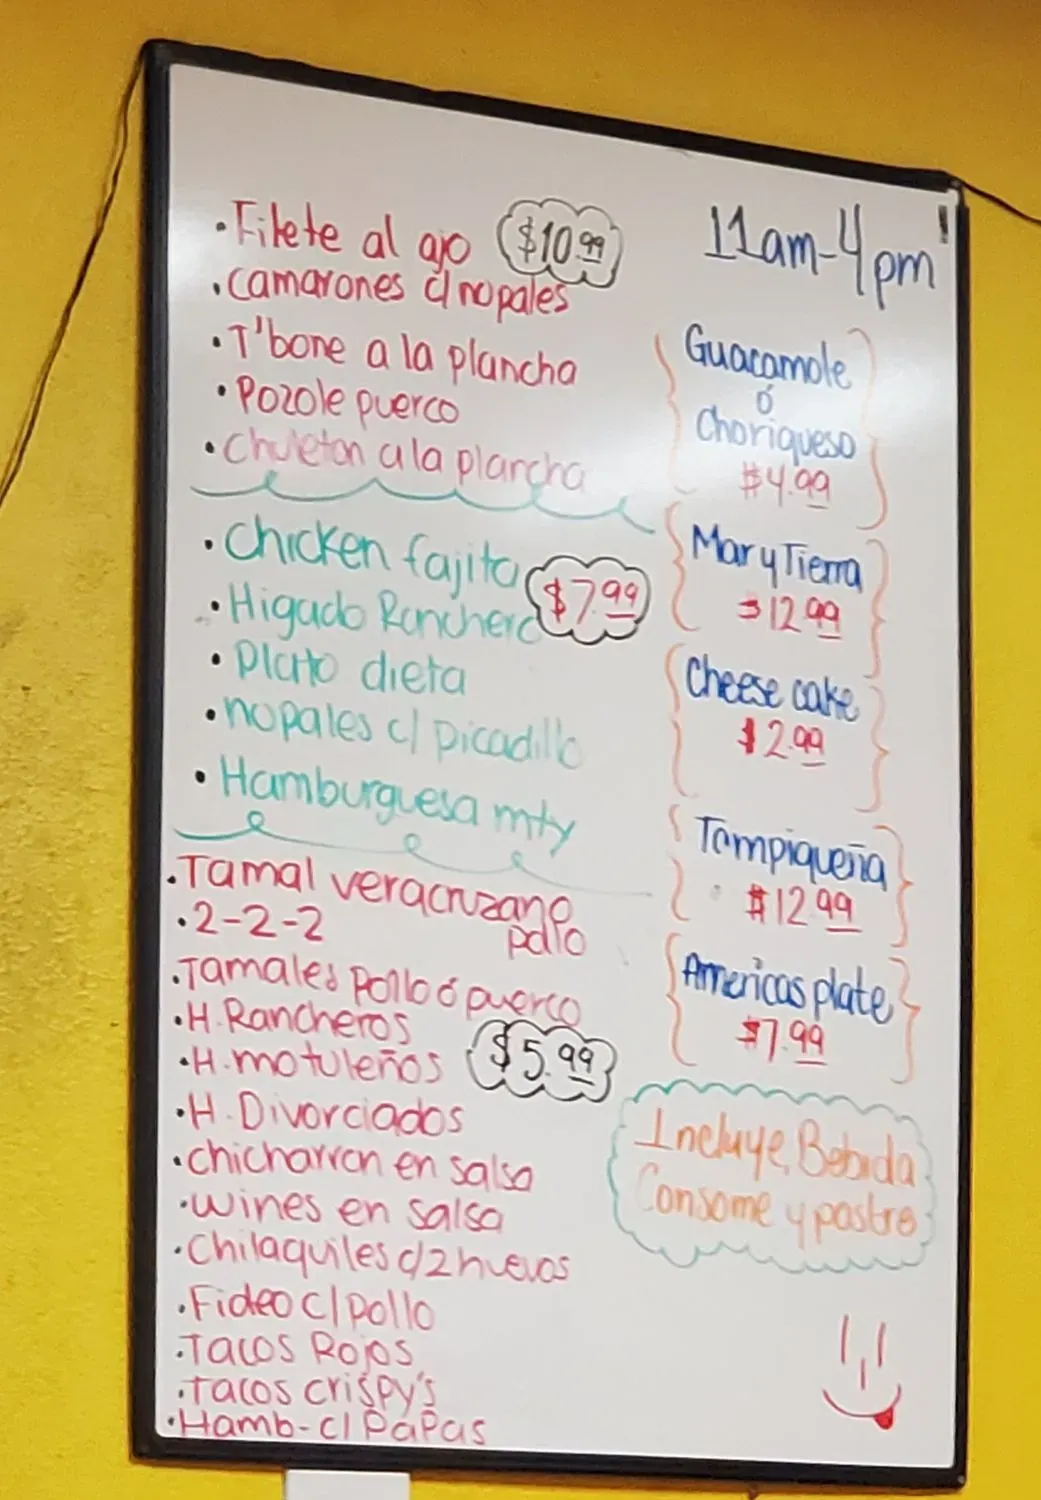 ·Filete al ajo $10.99
·camarones c/nopales
·T'bone a la plancha
·Pozole puerco
·Chuleton a la plancha
·Chicken fajita $7.99
·Higado Ranchero
·Plato dieta
·nopales c/ picadillo
·Hamburguesa mty
·Tamal veracruzano
pollo
·2-2-2
·Tamales pollo ó puerco
·H. Rancheros
·H. motuleños $5.99
·H. Divorciados
·chicharron en salsa
·wines en salsa
·Chilaquiles c/2 huevos
·Fideo c/pollo
·Tacos Rojos
·Tacos crispy's
·Hamb-c/ Papas
11am-4pm
Guacamole
ó
Choriqueso
$4.99
Mar y Tierra
$12.99
Cheese cake
$2.99
Tampiqueña
$12.99
Americas plate
$7.99
Incluye, Bebida
Consome y postre